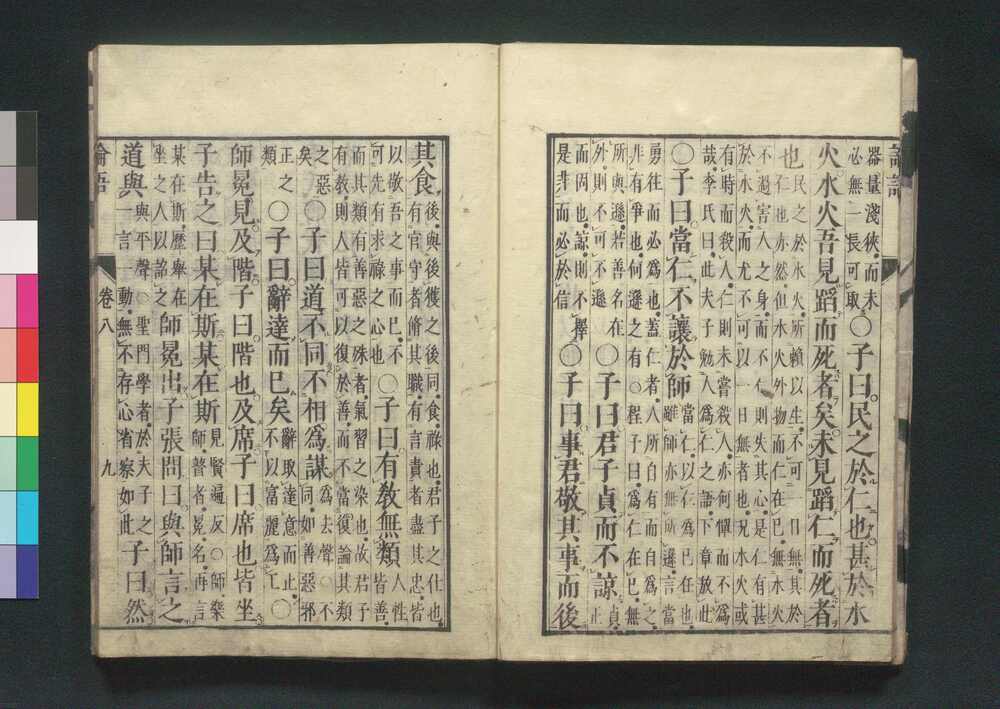 論語
器量淺狹而未
必無一長可取
○子曰民之於仁也甚於水
火水火吾見蹈而死者矣未見蹈仁而死者
也
民之於水火所賴以生不可一日無其於
仁也亦然但水火外物而仁在己無水火
不過害人之身而不仁則失其心是仁有甚
於水火而尤不可以一日無者也况水火或
有時而殺人仁則未嘗殺人亦何憚而不爲
哉李氏曰此夫子勉人爲仁之語下章放此
○子曰當仁不讓於師
當仁以仁爲己任也
雖師亦無所遜言當
勇往而必爲也蓋仁者人所自有而自爲之
非有爭也何遜之有○程子曰爲仁在己無
所與遜若善名在
外則不可不遜
○子曰君子貞而不諒
貞
正
而固也諒則不擇
是非而必於信
○子曰事君敬其事而後
其食
後與後獲之後同食祿也君子之仕也
有官守者脩其職有言責者盡其忠皆
以敬吾之事而已不
可先有求祿之心也
○子曰有敎無類
人性
皆善
而其類有善惡之殊者氣習之染也故君子
有敎則人皆可以復於善而不當復論其類
之惡
矣
○子曰道不同不相爲謀
爲去聲○不
同如善惡邪
正之
類
○子曰辭達而已矣
辭取達意而止
不以富麗爲工
○
師冕見及階子曰階也及席子曰席也皆坐
子告之曰某在斯某在斯
見賢遍反○師樂
師瞽者冕名再言
某在斯歷舉在
坐之人以詔之
師冕出子張問曰與師言之
道與
與平聲○聖門學者於夫子之
一言一動無不存心省察如此
子曰然
論語 卷八 九